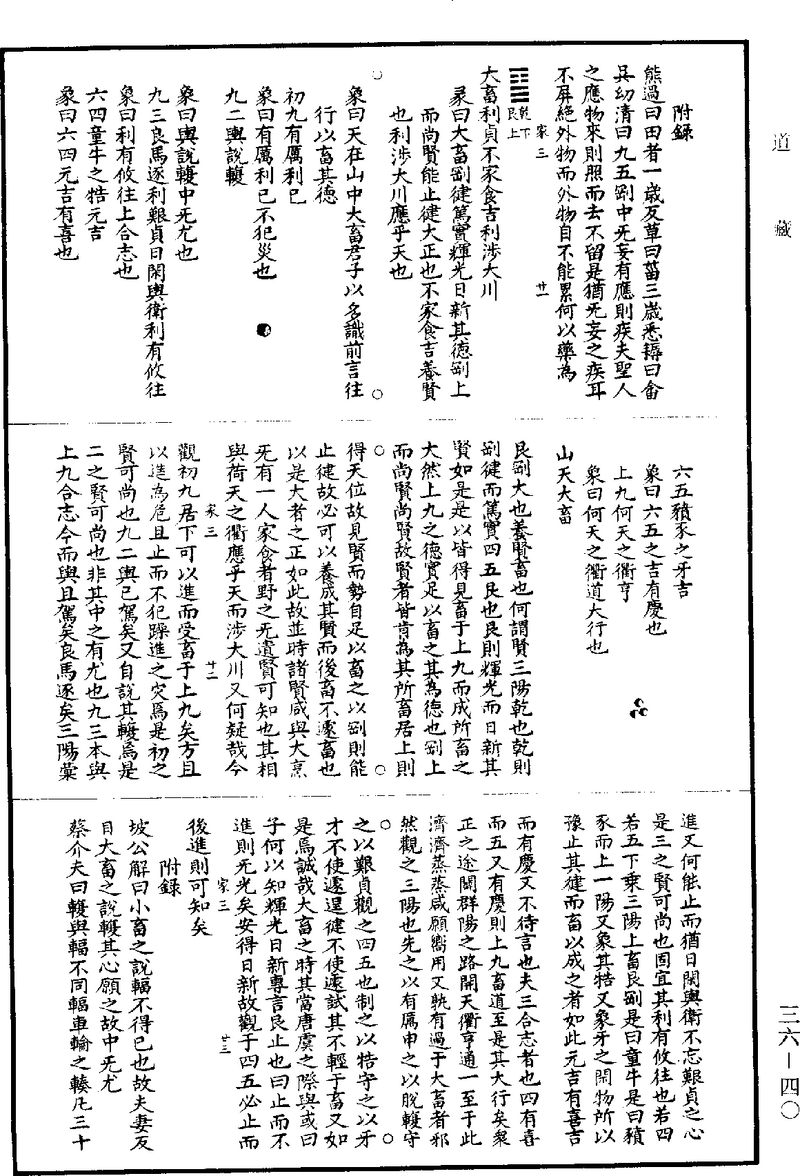 道藏
附錄
熊過曰田者一歲反草曰菑三歲悉耨曰畬
吳幼清曰九五剛中无妄有應則疾夫聖人
之應物來則照而去不留是猶无妄之疾耳
不屏絕外物而外物自不能累何以藥為
家三 廿一
乾下
艮上
大畜利貞不家食吉利涉大川
彖曰大畜剛健篤實輝光日新其德剛上
而尚賢能止健大正也不家食吉養賢
也利涉大川應乎天也
象曰天在山中大畜君子以多識前言往
行以畜其德
初九有厲利已
象曰有厲利已不犯災也
九二輿說輹
象曰輿說輹中无尤也
九三良馬逐利艱貞日閑輿衛利有攸往
象曰利有攸往上合志也
六四童牛之牿元吉
象曰六四元吉有喜也
六五豶豕之牙吉
象曰六五之吉有慶也
上九何天之衢亨
象曰何天之衢道大行也
山天大畜
艮剛大也養賢畜也何謂賢三陽乾也乾則
剛健而篤實四五艮也艮則輝光而日新其
賢如是是以皆得見畜于上九而成所畜之
大然上九之德實足以畜之其為德也剛上
而尚賢尚賢故賢者皆肯為其所畜居上則
得天位故見賢而勢自足以畜之以剛則能
止健故必可以養成其賢而後畜不遽畜也
以是大者之正如此故並時諸賢咸與大烹
无有一人家食者野之无遺賢可知也其相
與荷天之衢應乎天而涉大川又何疑哉今
家三 廿二
觀初九居下可以進而受畜于上九矣方且
以進為危且止而不犯躁進之災焉是初之
賢可尚也九二輿已駕矣又自說其輹焉是
二之賢可尚也非其中之有尤也九三本與
上九合志今而輿且駕矣良馬逐矣三陽彙
進又何能止而猶日閑輿衛不忘艱貞之心
是三之賢可尚也固宜其利有攸往也若四
若五下乘三陽上畜艮剛是曰童牛是曰豶
豕而上一陽又象其牿又象牙之閑物所以
豫止其健而畜以成之者如此元吉有喜吉
而有慶又不待言也夫三合志者也四有喜
而五又有慶則上九畜道至是其大行矣衆
正之途闢群陽之路開天衢亨通一至于此
濟濟蒸蒸咸願嚮用又孰有過于大畜者邪
然觀之三陽也先之以有厲申之以脫輹守
之以艱貞觀之四五也制之以牿守之以牙
才不使遽逞健不使遽試其不輕于畜又如
是焉誠哉大畜之時其當唐虞之際與或曰
子何以知輝光日新專言艮止也曰止而不
進則无光矣安得日新故觀于四五必止而
家三 廿三
後進則可知矣
附錄
坡公解曰小畜之說輻不得已也故夫妻反
目大畜之說輹其心願之故中无尤
蔡介夫曰輹與輻不同輻車輪之轑凡三十
三六—四〇